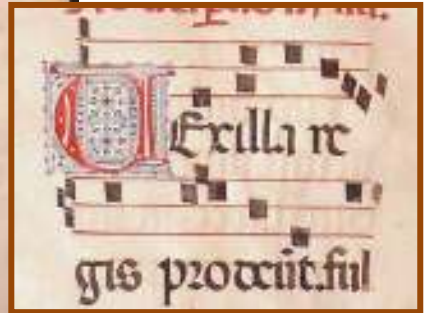 VExilla re
gis prodeūt.ful